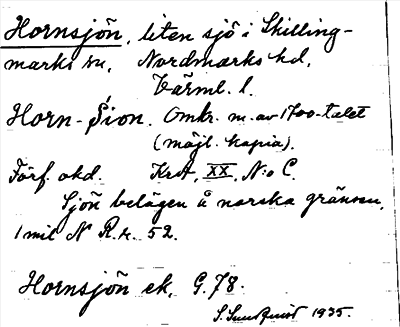 Hornsjön, liten sjö i Skilling-
marks sn, Nordmarks hd,
Värml. l.
Horn-Sion. Omkr. m. av 1700-talet
(möjl. kopia).
Förf. okd. KrA, XX, N:o C.
Sjön belägen å norska gränsen,
1 mil N R.r. 52.
Hornsjön ek. G.78.
S. Sundqvist 1935.